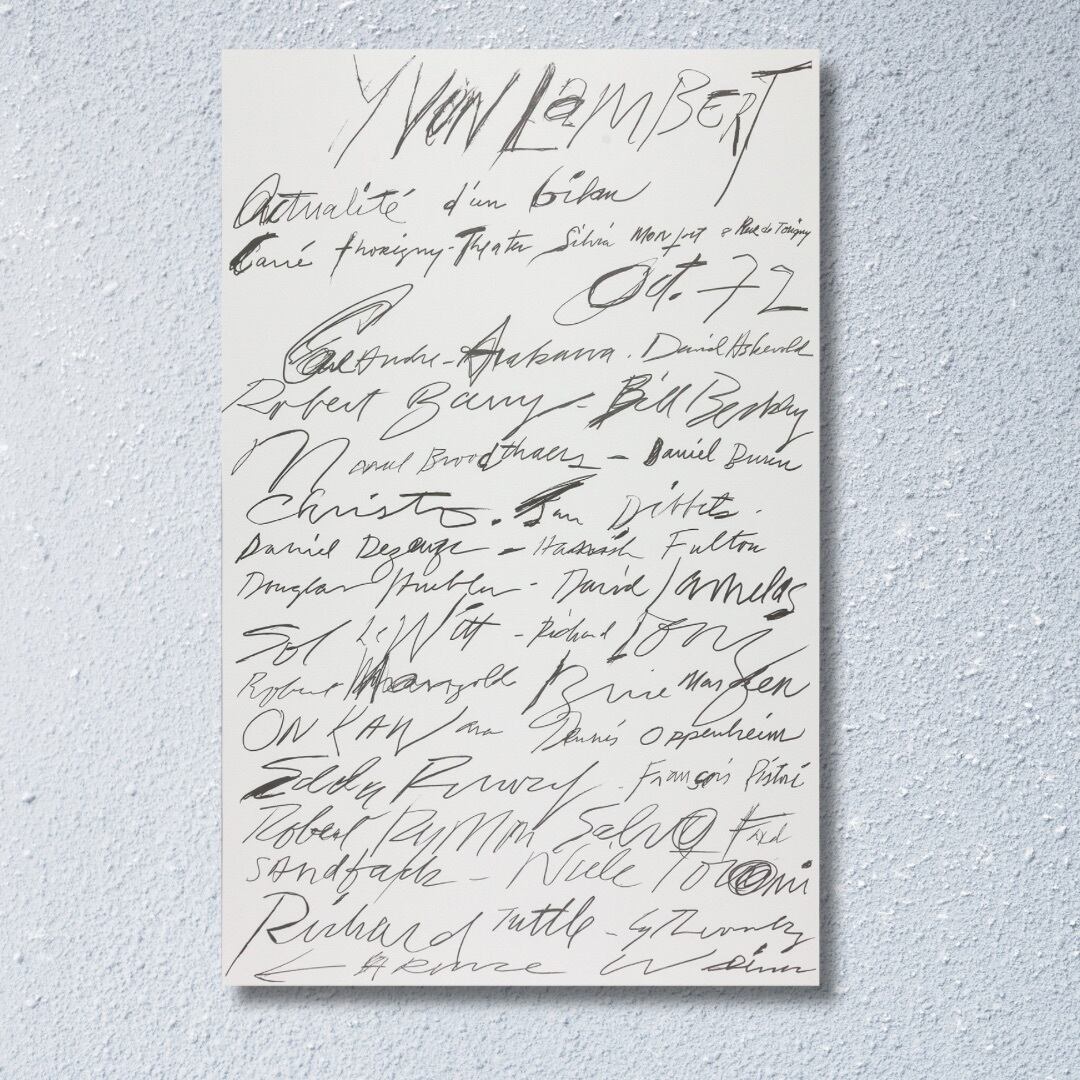 YVON LaMBERT
Actualité d'un bilan
Carré thorigny-Theater Silvia Monfort 8 Rue de Torigny
Oct. 72
Carl Andre - Arakawa. David Askevold
Robert Barry - Bill Beckley
Marcel Broodthaers - Daniel Buren
Christo. Jan Dibbets.
Daniel Dezeuze - Hamish Fulton
Douglas Huebler - David Lamelas
Sol LeWitt - Richard Long
Robert Mangold Brice Marden
ON KAWara Dennis Oppenheim
Edda Renouf. François Ristori
Robert Ryman Salvo Fred
SAndback - Niele Toroni
Richard Tuttle - Cy Twombly
LAwrence Weiner